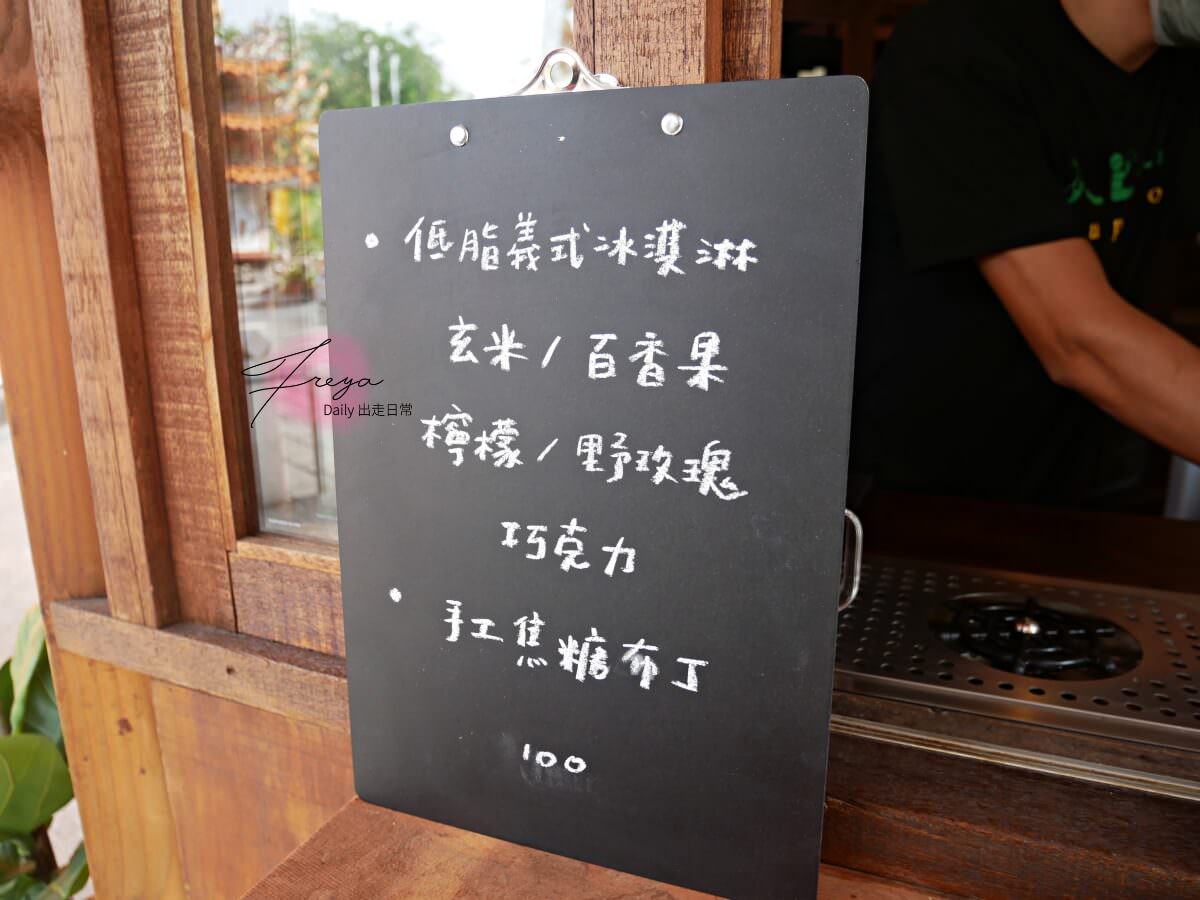 • 低脂義式冰淇淋
玄米 / 百香果
Freya
Daily 出走日常
檸檬 / 野玫瑰
巧克力
• 手工焦糖布丁
100